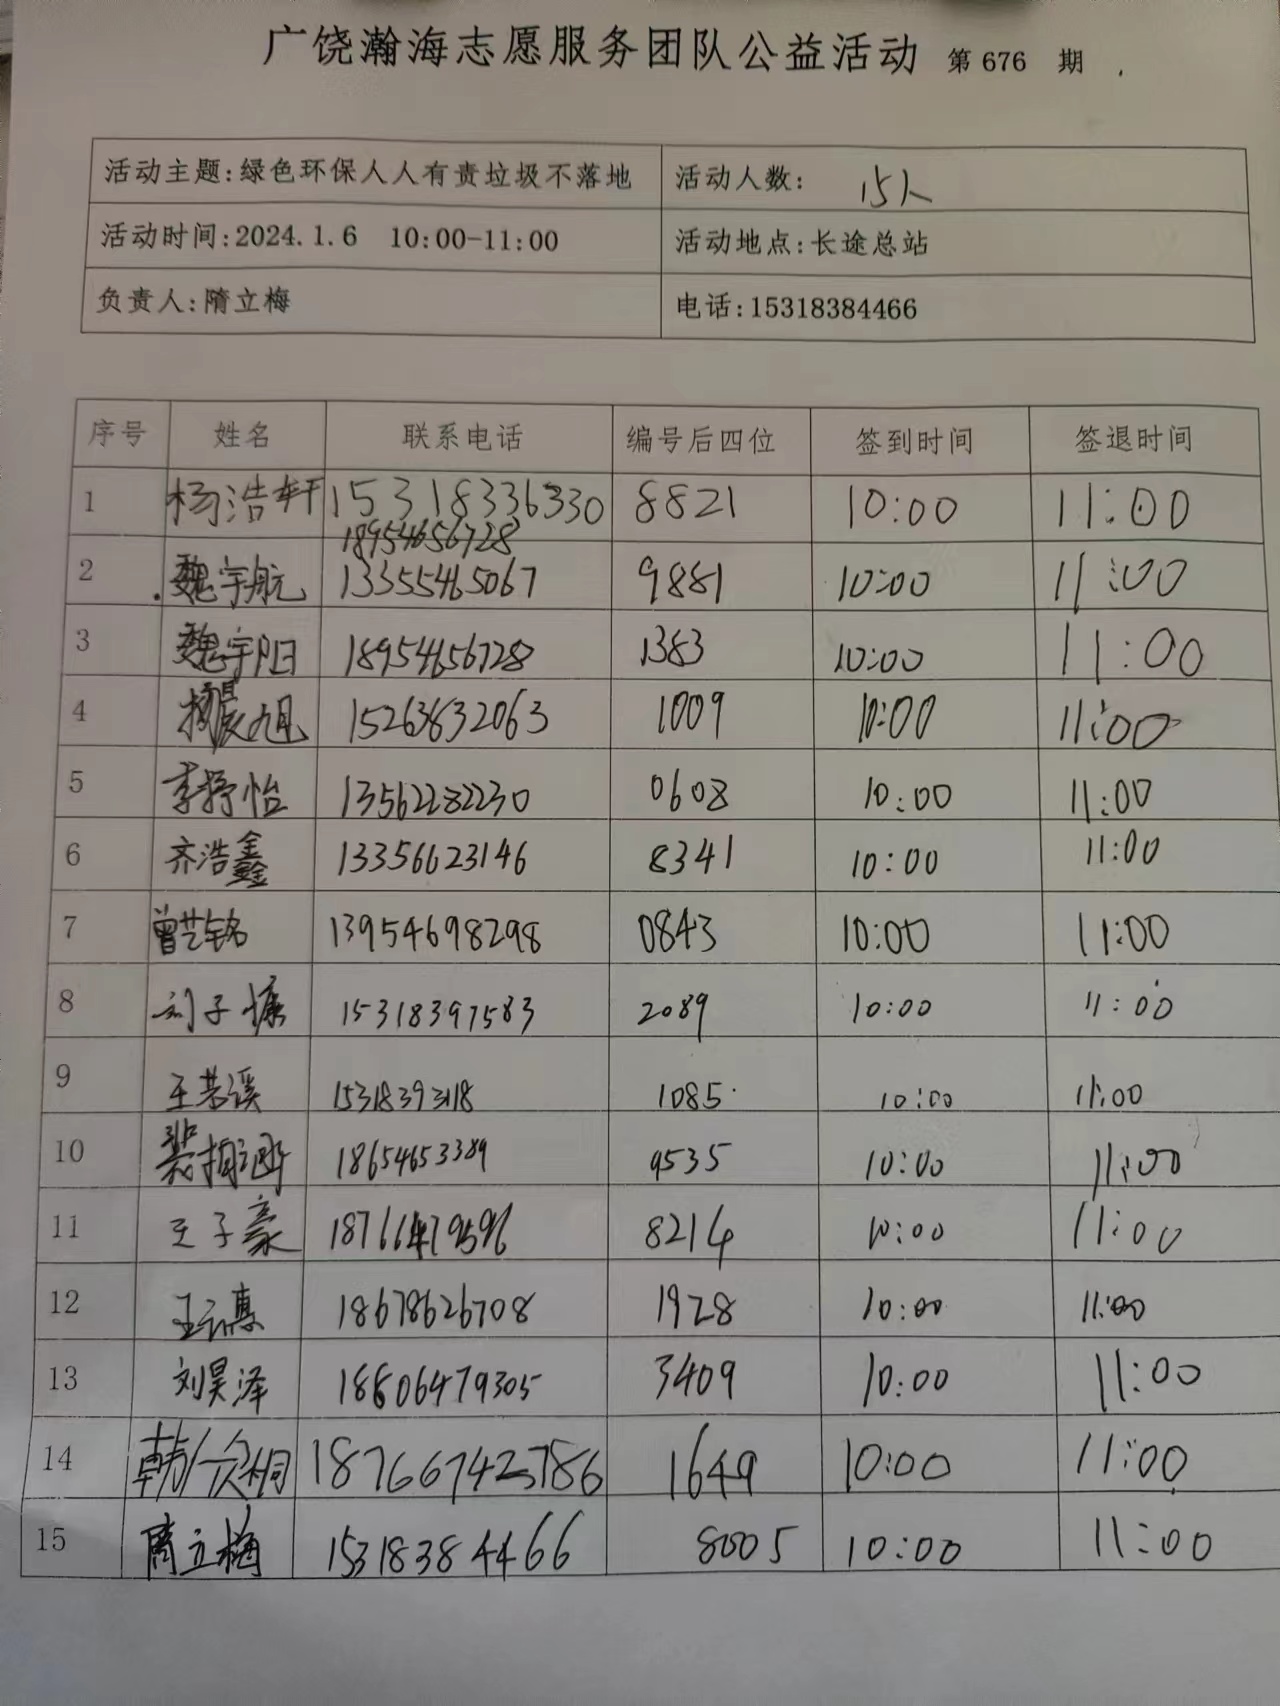 广饶瀚海志愿服务团队公益活动 第 676 期
活动主题:绿色环保人人有责垃圾不落地 活动人数: 15人
活动时间:2024.1.6 10:00-11:00 活动地点:长途总站
负责人:隋立梅 电话:15318384466
序号 姓名 联系电话 编号后四位 签到时间 签退时间
1 杨浩轩 15318336330 8821 10:00 11:00
18954656728
2 魏宇航 13355465067 9881 10:00 11:00
3 魏宇阳 18954656728 1383 10:00 11:00
4 杨晨旭 15263832063 1009 10:00 11:00
5 李抒怡 13562282230 0608 10:00 11:00
6 齐浩鑫 13356623146 8341 10:00 11:00
7 曾艺铭 13954698298 0843 10:00 11:00
8 刘子慷 15318397583 2089 10:00 11:00
9 王若溪 15318393118 1085 10:00 11:00
10 18654653389 9535 10:00 11:00
11 王子豪 8214 10:00 11:00
12 18678626708 1928 10:00 11:00
13 刘昊泽 18606479305 3409 10:00 11:00
14 18766742786 1649 10:00 11:00
15 隋立梅 15318384466 8005 10:00 11:00